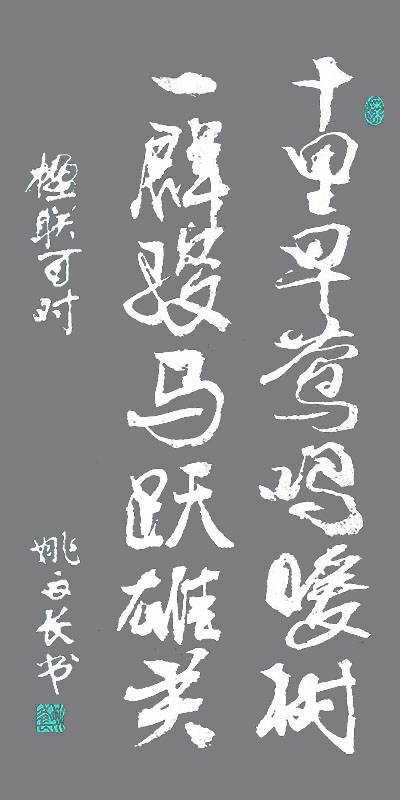 十里早莺鸣暖树
一群骏马跃雄关
楹联百对
姚 长书